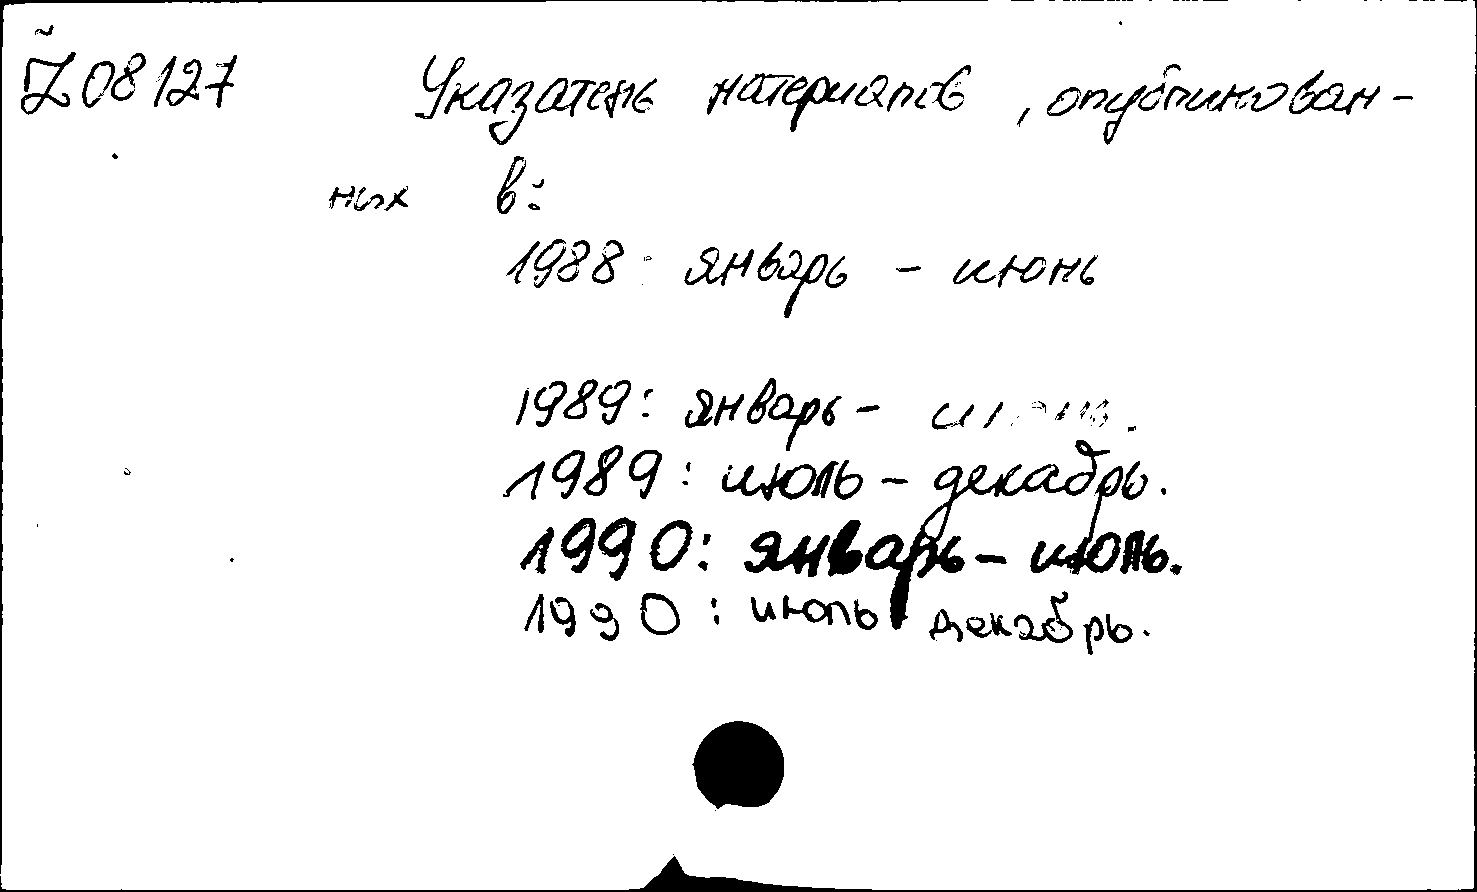 Z̃08127 Указатель материалов, опубликован-
ных в:
1988: январь - июнь
1989: январь - июнь.
1989: июль - декабрь.
1990: январь - июнь.
1990: июль - декабрь.